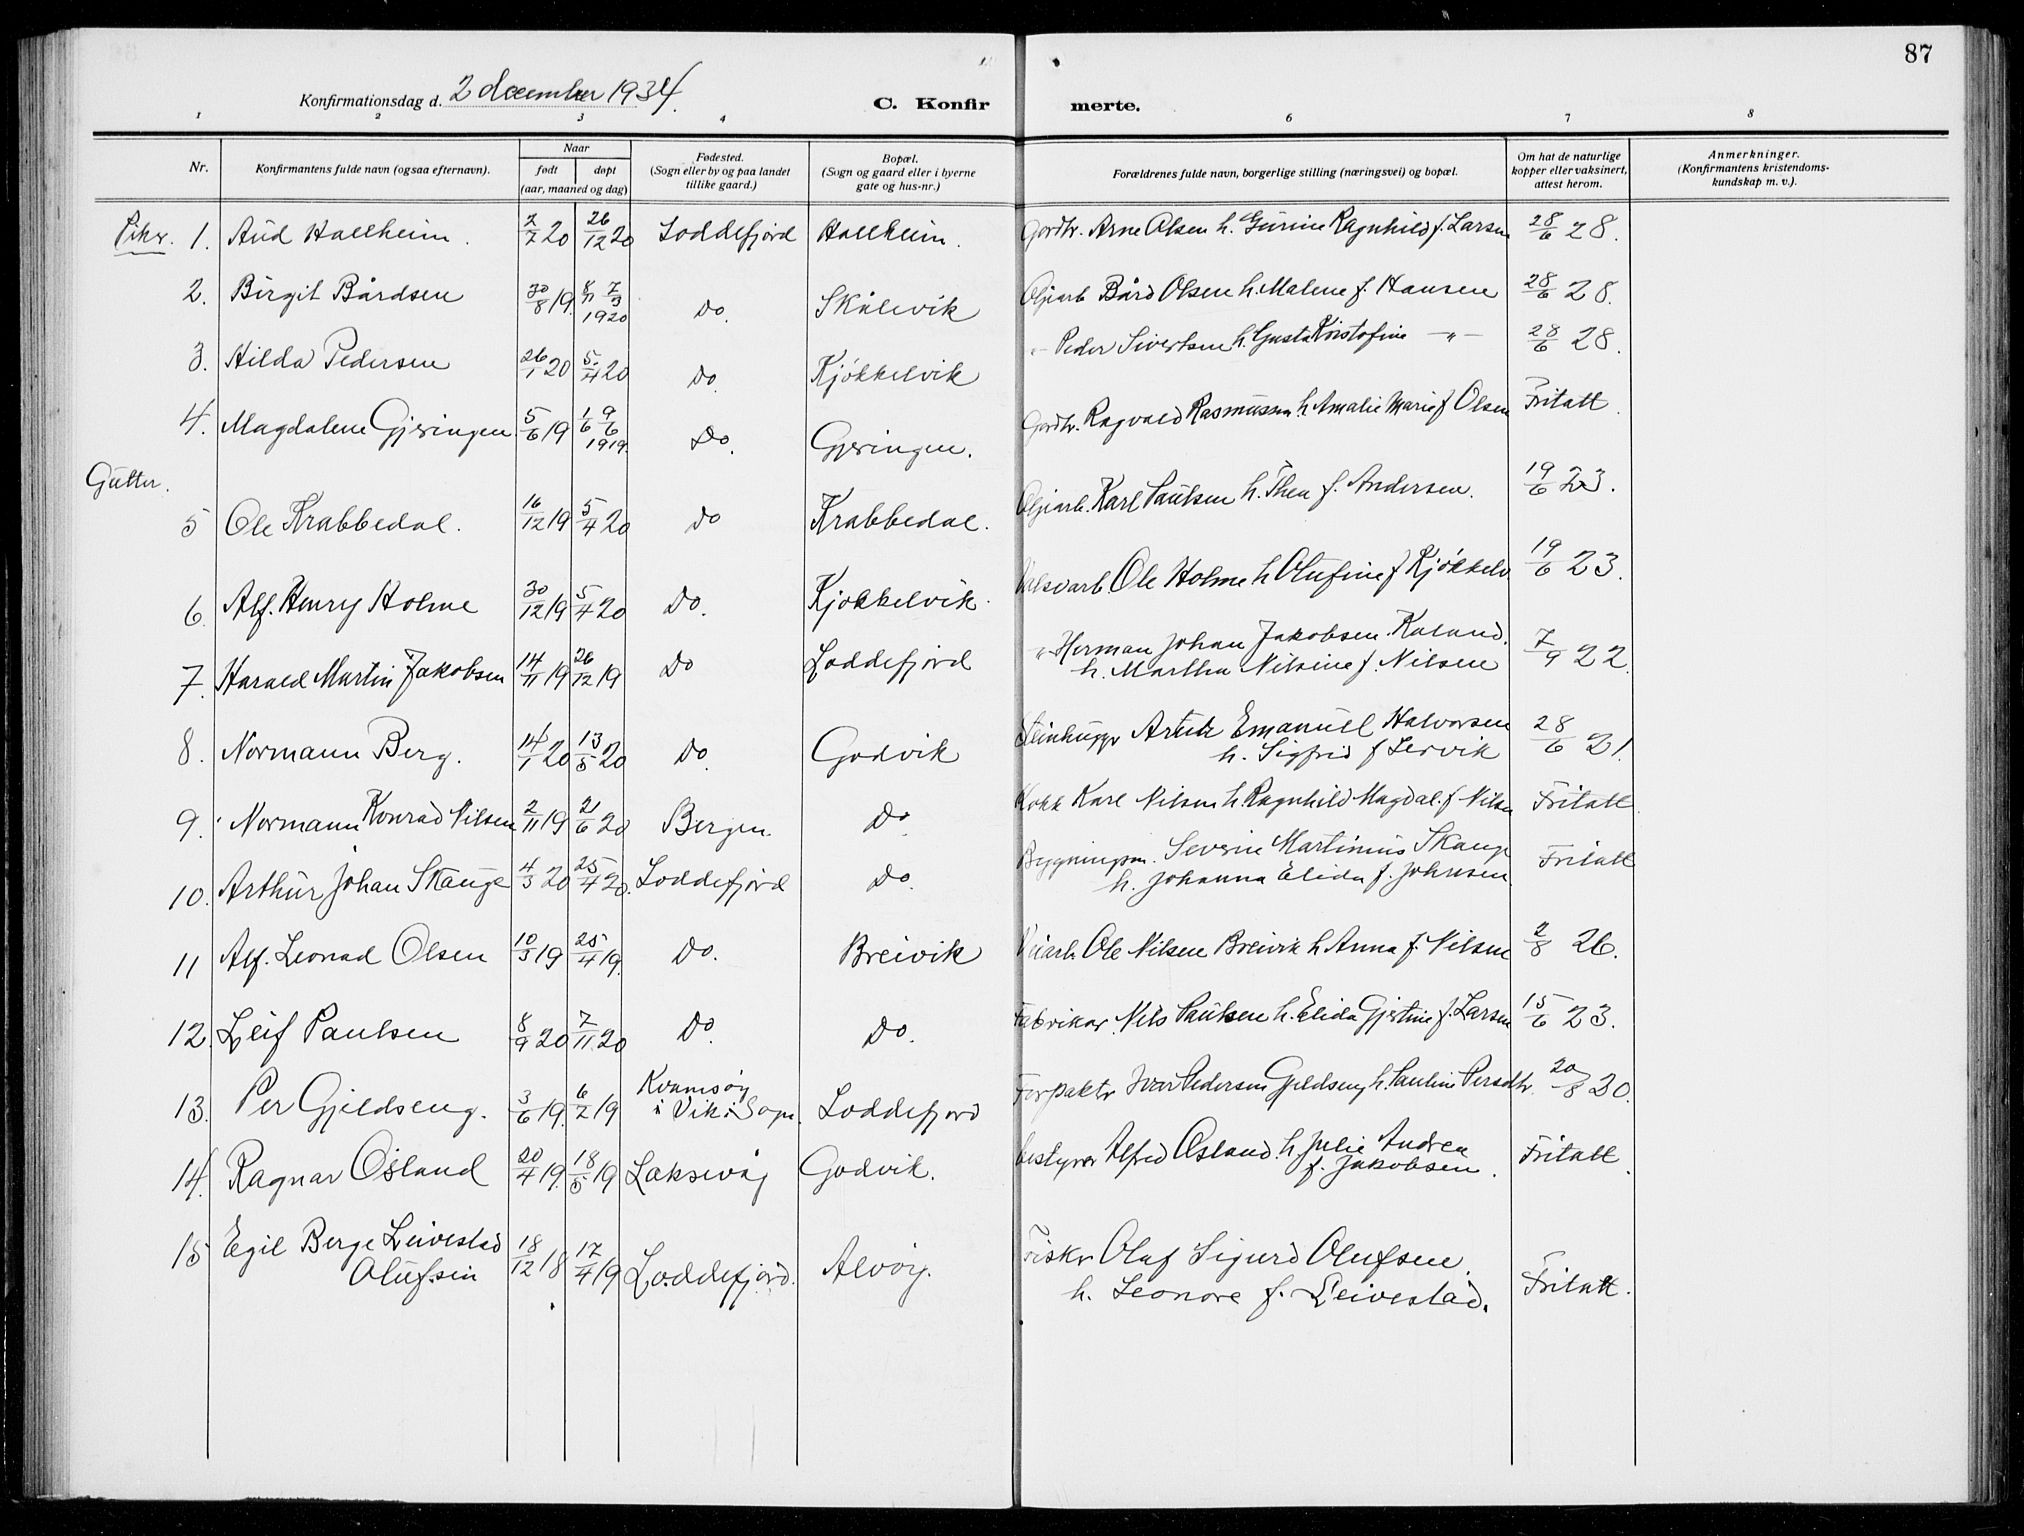 87
Konfirmationsdag d. 2 december 1934.
C. Konfir merte.
1 2 3 4 6 7 8
Nr. Konfirmantens fulde navn (ogsaa efternavn). Naar født døpt (aar, maaned og dag) Fødested. (Sogn eller by og paa landet tillike gaard.) Bopæl. (Sogn og gaard eller i byerne gate og hus-nr.) Forældrenes fulde navn, borgerlige stilling (næringsvei) og bopæl. Om hat de naturlige kopper eller vaksinert, attest herom. Anmerkninger. (Konfirmantens kristendoms-kundskap m. v.).
Piker. 1. Aud Hallheim. 7/7 20 26/12 20 Loddefjord Hallheim. Gordbr. Arne Olsen h. Gurine Ragnhild f. Larsen 28/6 28.
2. Birgit Bårdsen 30/8 19. 8/11 7/3 1920 Do. Skålevik Oljearb Bård Olsen h. Malene f. Hansen 28/6 28.
3. Hilda Pedersen 26/1 20 5/4 20 Do. Kjøkkelvik "- Peder Sivertsen h. Gusta Kristofine -"- 28/6 28.
4. Magdalene Gjeringen 5/6 19 1/6 9/6 1919. Do. Gjeringen. Gordbr. Ragvald Rasmussen h Amalie Marie f Olsen Fritatt.
Gutter.
5 Ole Krabbedal. 16/12 19 5/4 20 Do Krabbedal. Oljearb. Karl Paulsen h. Thea f. Andersen. 19/6 23.
6. Alf. Henry Holme 30/12 19 5/4 20 Do. Kjøkkelvik. Ole Holme h Olufine f Kjøkkelv 19/6 23.
7. Harald Martin Jakobsen 14/11 19 26/12 19 Do Loddefjord " Herman Johan Jakobsen Kaland.
h. Martha Nilsine f. Nilsen 7/9 22.
8. Normann Berg. 14/1 20 13/5 20 Do. Godvik Steinhugger Emanuel Halvorsen
h. Sigfrid f Lervik 28/6 21.
9. Normann Konrad Nilsen 2/11 19 21/6 20 Bergen. Do. Kokk Karl Nilsen h. Ragnhild Magdal. f Nilsen Fritatt.
10. Arthur Johan Skauge 4/3 20 25/4 20. Loddefjord Do. Bygningsm. Severin Martinius Skauge
h. Johanna Elida f. Johnsen. Fritatt
11 Alf. Leonad Olsen 10/3 19 25/4 19. Do. Breivik Veiarb. Ole Nilsen Breivik h Anna f. Nilsen 2/8 26.
12. Leif Paulsen 8/9 20 7/11 20 Do. Do. Fabrikar. Nils Paulsen h. Elida Gjertine f. Larsen 15/6 23.
13. Per Gjeldseng. 3/6 19. 6/7 19 Kvamsøy i Vik i Sogn. Loddefjord Forpaktr Ivar Pedersen Gjeldseng h. Pauline Persdtr. 20/8 20.
14. Ragnar Øsland 20/4 19. 18/5 19 Laksevåg Godvik. bestyrer Alfred Øsland. h Julie Andrea
f. Jakobsen. Fritatt.
15 Egil Berge Leivestad
Olufsen 18/12 18 17/4 19 Loddefjord. Alvøy. Fisker Olaf Sigurd Olufsen.
h. Leonore f. Leivestad. Fritatt.